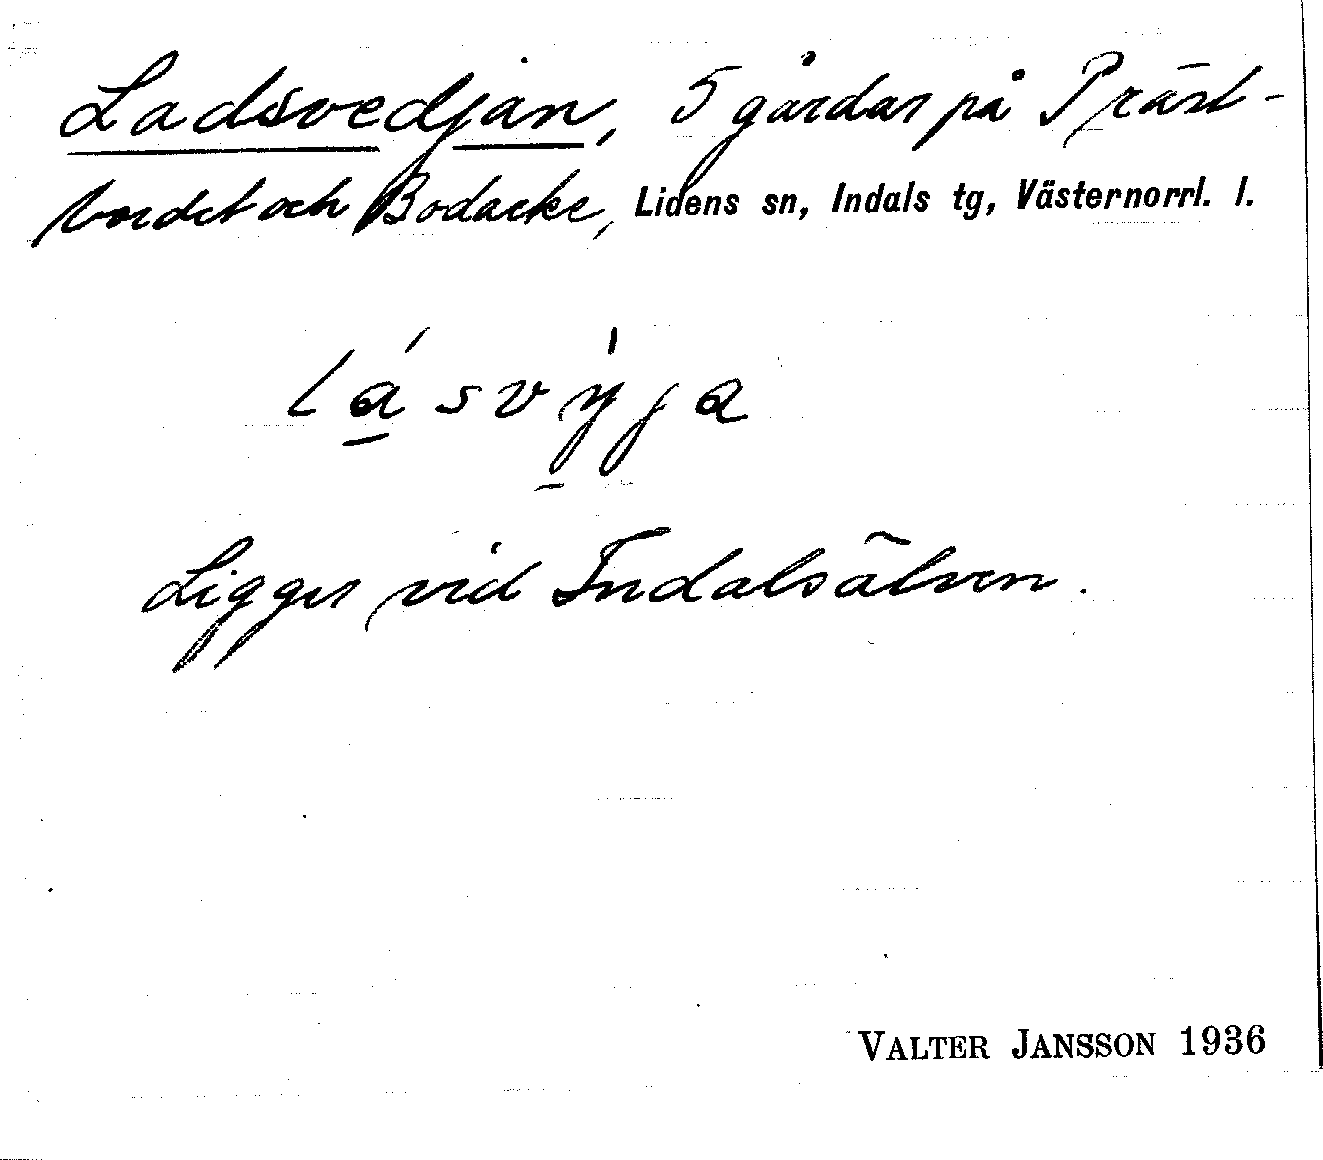 Ladsvedjan, 5 gårdar på Präst-
bordet och Bodacke, Lidens sn, Indals tg, Västernorrl. l.
lásvy̍ja
Ligger vid Indalsälven.
VALTER JANSSON 1936